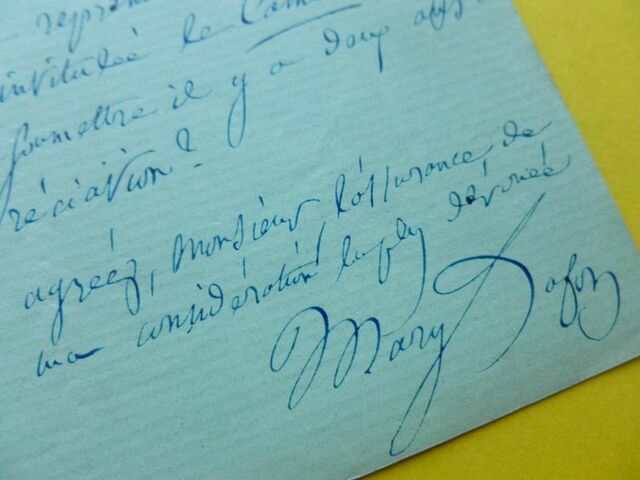 intitulée le Com
soumettre il y a deux ans
réciation?
agréez, Monsieur, l'assurance de
ma considération la plus dévouée
Mary Lafon